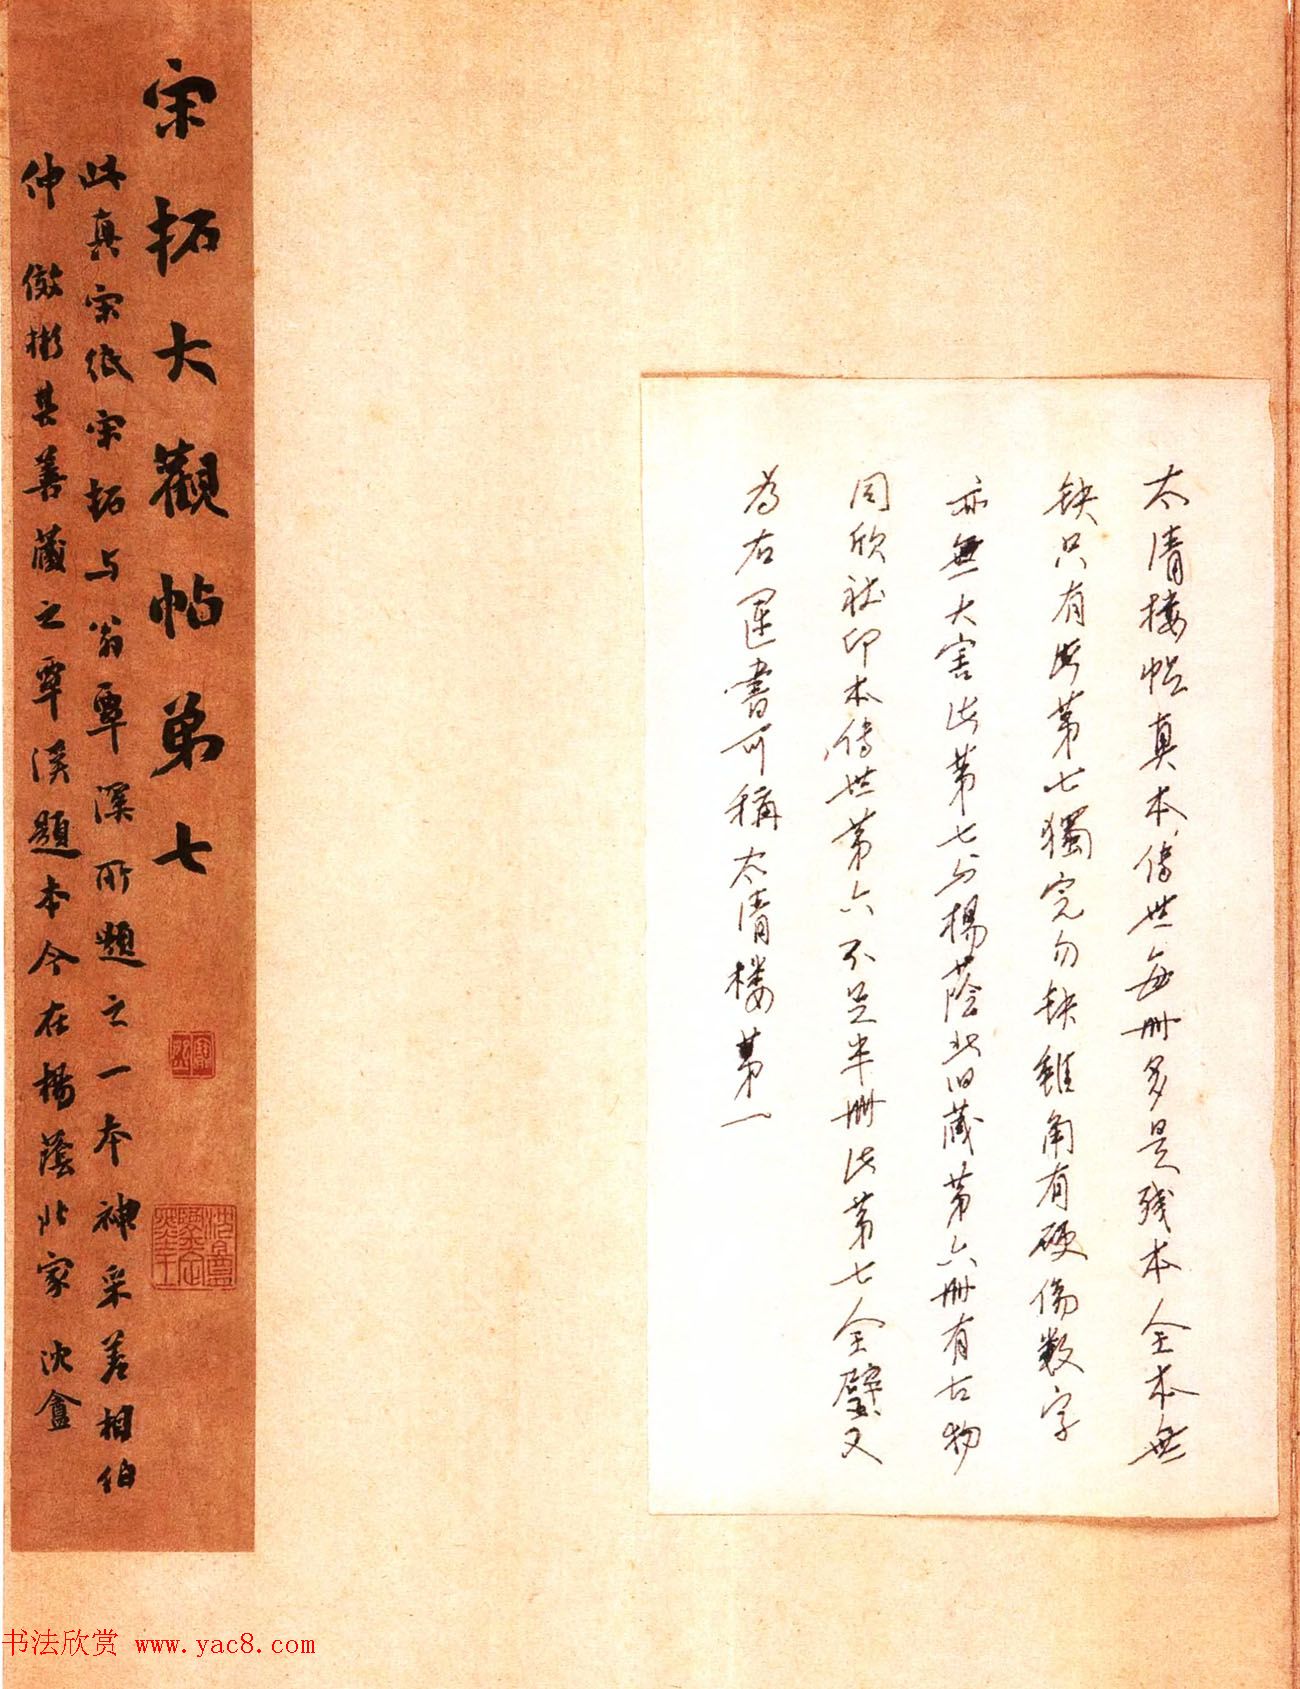 太清楼帖真本傳世每册多是残本全本無
缺只有此第七獨完勿缺雖角有硬傷數字
亦無大害此第七与楊蔭北旧藏第六册有古物
同欣社印本傳世第六不足半册此第七全璧又
為右軍書可稱太清楼第一
宋拓大觀帖弟七
此真宋紙宋拓与翁覃溪所題之一本神采差相伯
仲 儆彬其善藏之覃溪題本今在楊蔭北家 沈盦
书法欣赏 www.yac8.com